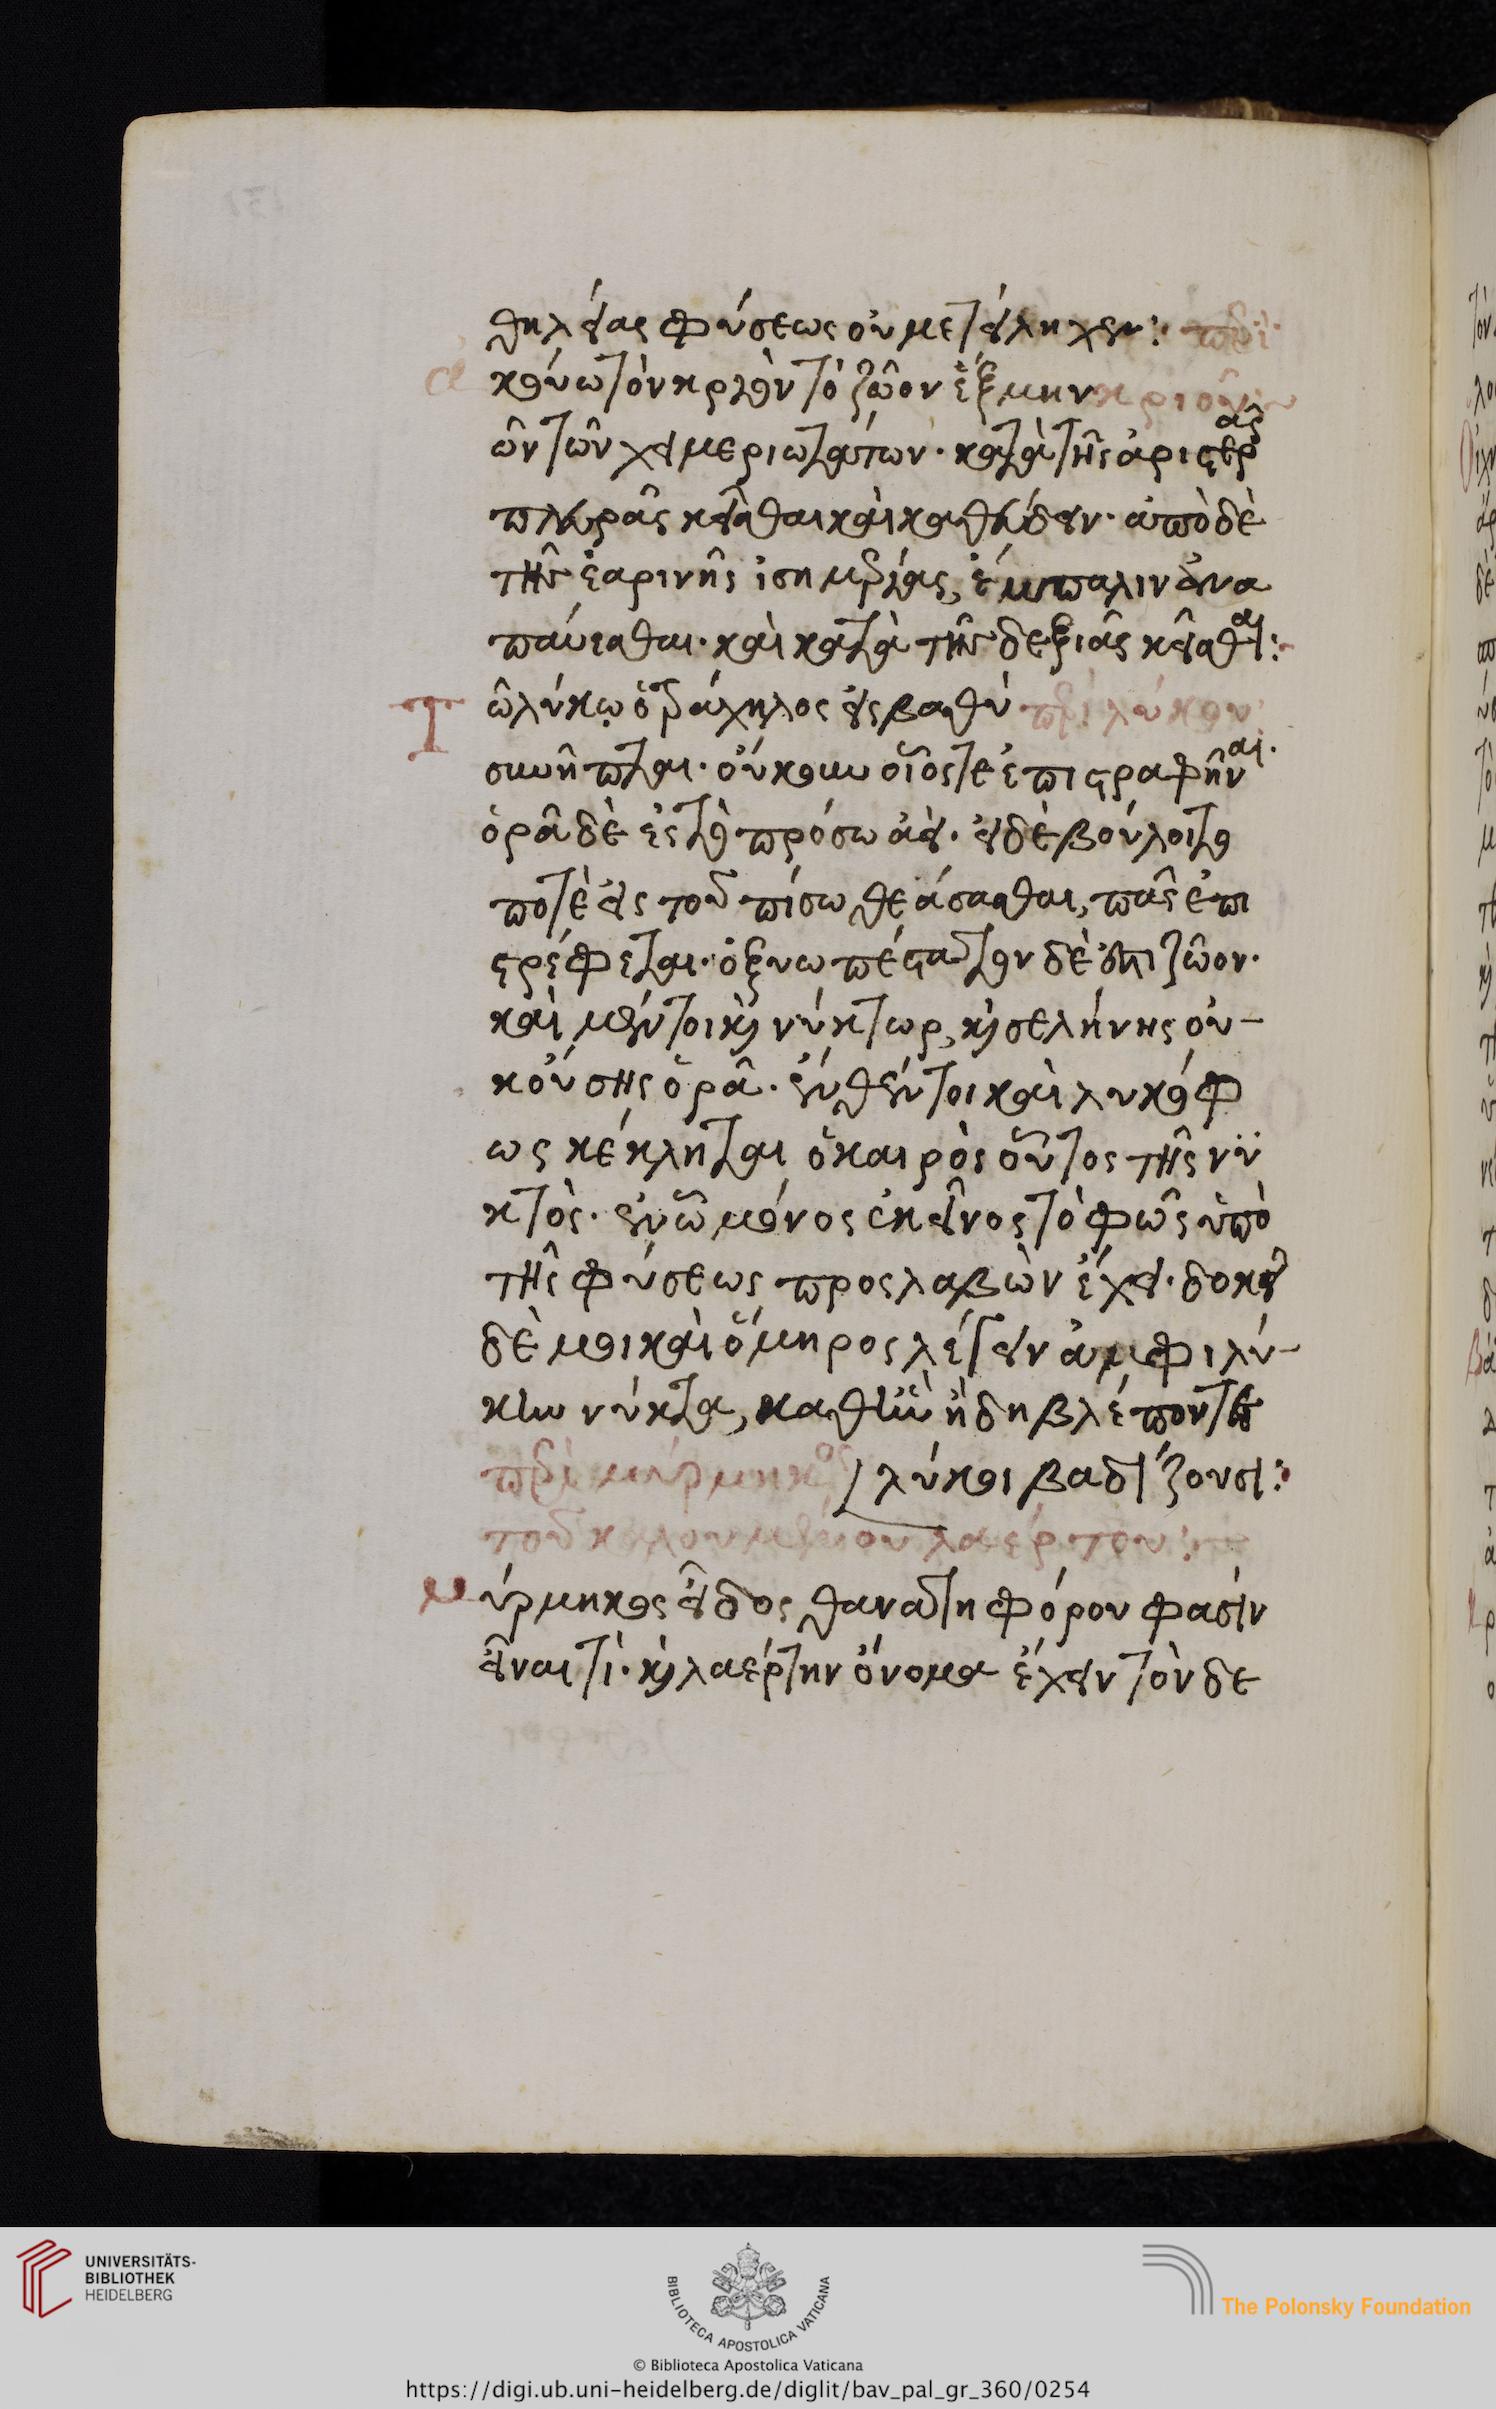 θηλείας φύσεως οὐ μετείληχεν: περὶ
ἀκούω τὸν κριὸν τὸ ζῶον ἓξ μην κριοῦ
ῶν τῶν χειμεριωτάτων· κατὰ τῆς ἀριστερᾶς
πλευρᾶς κεῖσθαι καὶ καθεύδειν· ἀπὸ δὲ
τῆς ἐαρινῆς ἰσημερίας, ἔμπαλιν ἀνα
παύεσθαι· καὶ κατὰ τῆς δεξιᾶς κεῖσθαι:
Τῶ λύκῳ ὁ τράχηλος εἰς βαθὺ περὶ λύκου
συνῆπται· οὔκουν οἷός τε ἐπιστραφῆναι·
ὁρᾶ δὲ ἐς τὸ πρόσω ἀεί· εἰ δὲ βούλοιτο
ποτὲ εἰς τοὐπίσω θεάσασθαι, πᾶς ἐπι
στρέφεται· ὀξυωπέστατον δὲ ἐστι ζῶον·
καὶ μέντοι καὶ νύκτωρ, καὶ σελήνης οὐ-
κ οὔσης ὁρᾶ· ἔνθέν τοι καὶ λυκόφ
ως κέκληται ὁ καιρὸς οὗτος τῆς νυ
κτὸς· ἐν ὧ μόνος ἐκεῖνος τὸ φῶς ὑπὸ
τῆς φύσεως προσλαβὼν ἔχει· δοκεῖ
δὲ μοι καὶ ὅμηρος λέγειν ἀμφιλύ-
κην νύκτα, καθ ἣν ἤδη βλέποντες
περὶ μύρμηκος λύκοι βαδίζουσι:
τοῦ καλουμένου λαέρτου:
Μύρμηκος εἶδος θανατηφόρον φασὶν
εἶναι τὶ· καὶ λαέρτην ὄνομα ἔχειν τόνδε
UNIVERSITÄTS-
BIBLIOTHEK
HEIDELBERG
BIBLIOTECA APOSTOLICA VATICANA
The Polonsky Foundation
© Biblioteca Apostolica Vaticana
https://digi.ub.uni-heidelberg.de/diglit/bav_pal_gr_360/0254